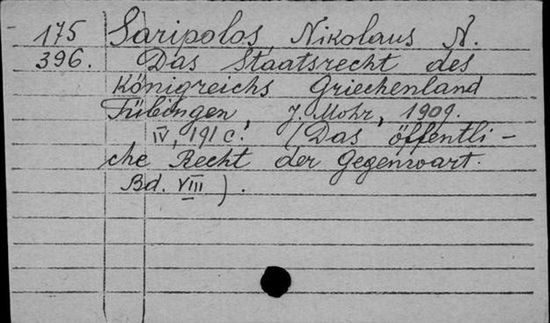 175 Saripolos, Nikolaus N.
396. Das Staatsrecht des
Königreichs Griechenland
Tübingen, J. Mohr, 1909.
IV, 191 c. (Das öffentli-
che Recht der Gegenwart.
Bd. VIII).